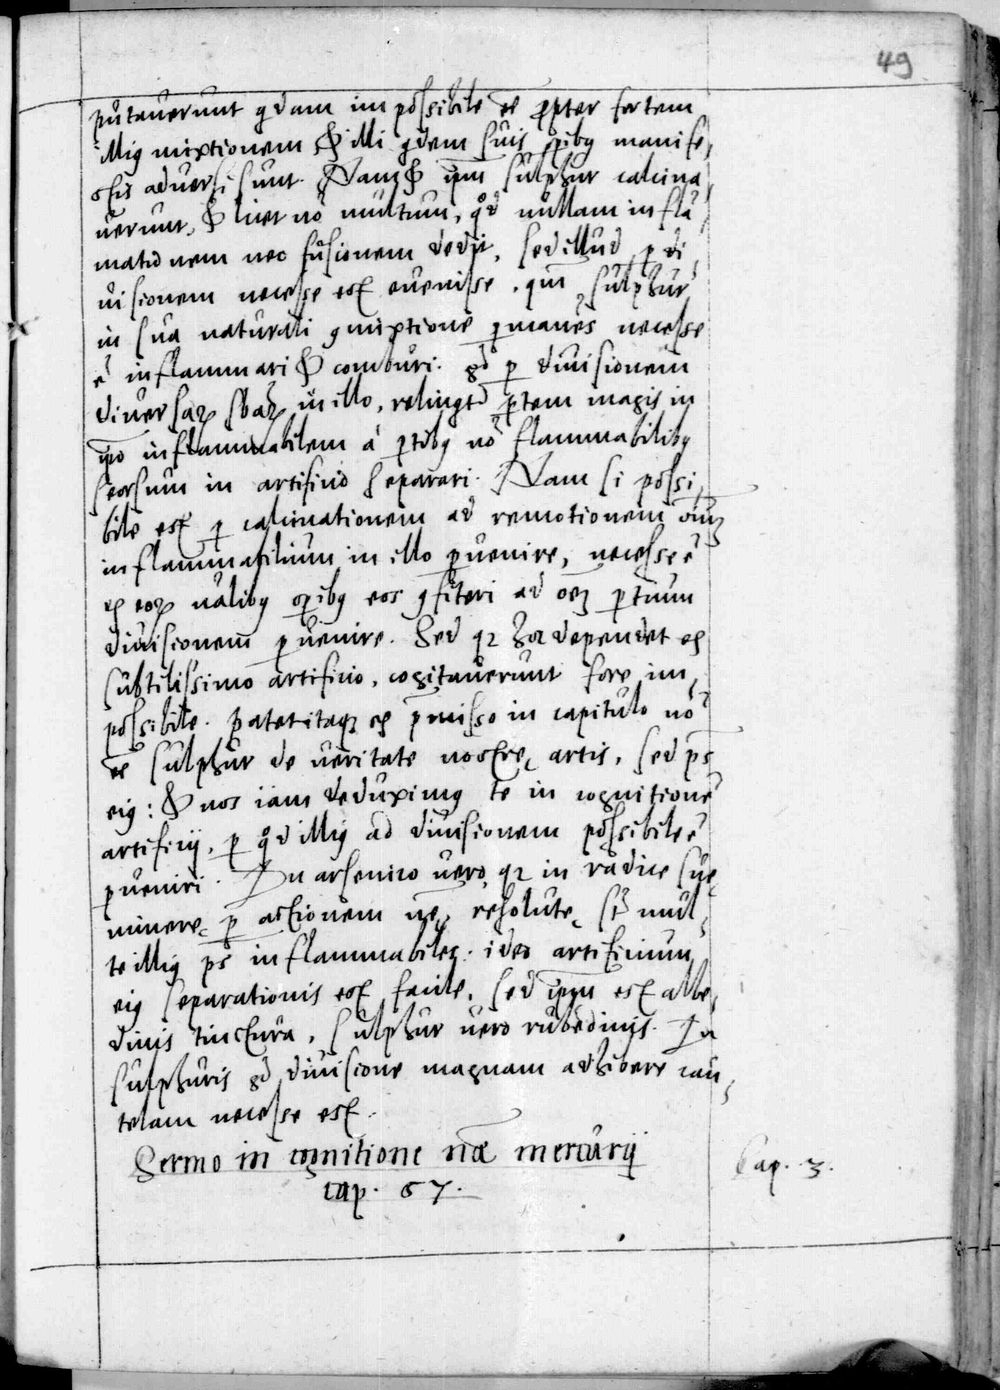 49
putaverunt qdam impossibile ee ꝓpter fortem
illiꝰ mixtionem & illi qdem suis opibꝰ manife,
stis adversi sunt. Nam & ipm sulphur calcina,
verunt, & licet nō multum, qd nullam infla,
mationem nec fusionem dedit, sed illud ꝑ di,
visionem necesse est evenisse, qm sulphur
in sua naturali ꝯmixtione ꝑmanēs necesse
ē inflammari & comburi. gͦ ꝑ divisionem
diversaꝝ sbaꝝ in illo, relinqtͬ ꝑtem magis in
ipo inflammabilem á ꝑtibꝰ nō flammabilibꝰ
seorsum in artificio separari. Nam si possi,
bile est ꝑ calcinationem ad remotionem oīuꝫ
inflammabilium in illo ꝑvenire, necesse ē
ex eoꝝ talibꝰ opibꝰ eos ꝯfiteri ad oēꝫ ꝑtium
divisionem ꝑvenire. Sed qꝛ hoc dependet ex
subtilissimo artificio, cogitaverunt fore im,
possibile. Patet itaqꝫ ex p̄misso in capitulo nō
ee sulphur de veritate nostre artis, sed ps
eiꝰ: & nos iam deduximꝰ te in cognitionē
artificij, ꝑ qd illiꝰ ad divisionem possibile ē
ꝑveniri. In arsenico vero, qꝛ in radice sue
minere ꝑ actionem nẹ resolute st mul,
te illiꝰ ps inflammabiles. ideo artificium
eiꝰ separationis est facile, sed ipm est albe,
dinis tinctura, sulphur vero rubedinis. In
sulphuris gͦ divisione magnam adhibere cau,
telam necesse est.
Sermo in cognitione nāe mercurij
cap. 67.
Cap. 3.